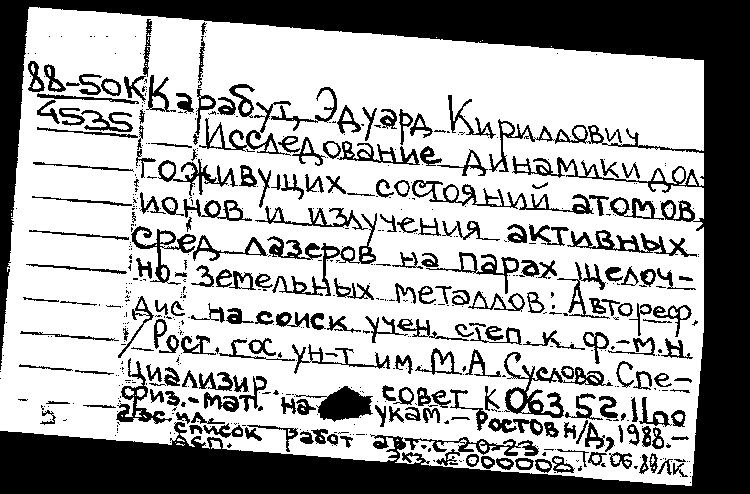 88-50К
4535
Карабут, Эдуард Кириллович
Исследование динамики дол-
гоживущих состояний атомов,
ионов и излучения активных
сред лазеров на парах щелоч-
но-земельных металлов: Автореф.
дис. на соиск. учен. степ. к. ф.-м.н.
/Рост. гос. ун-т им. М.А. Суслова. Спе-
циализир. совет К 063.52.11 по
физ.-мат. наукам. - Ростов н/Д, 1988.-
23с. ил.
Список работ авт.: с. 20-23.
Экз. № 000008. 10.06.88